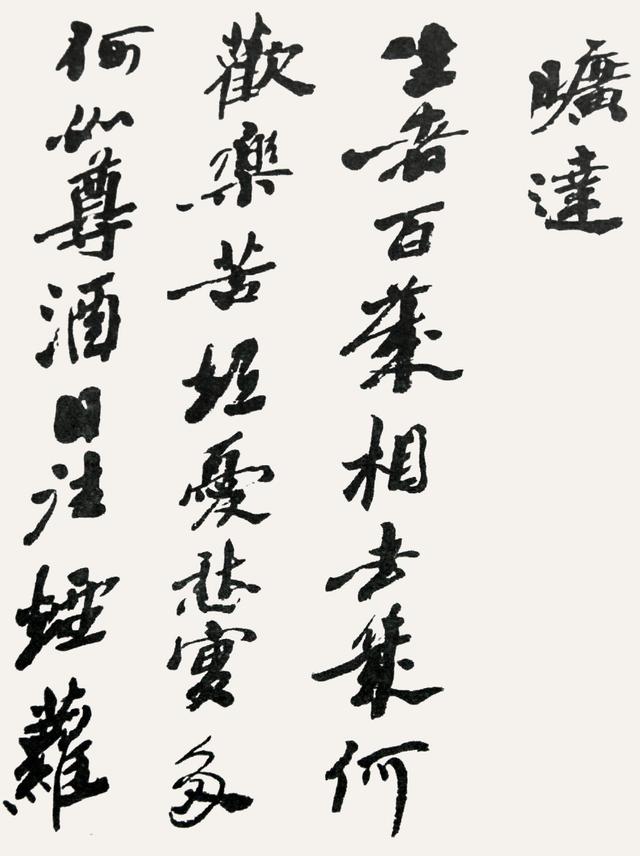 曠達
生者百歲相去幾何
歡樂苦短憂愁實多
何如尊酒日往煙蘿